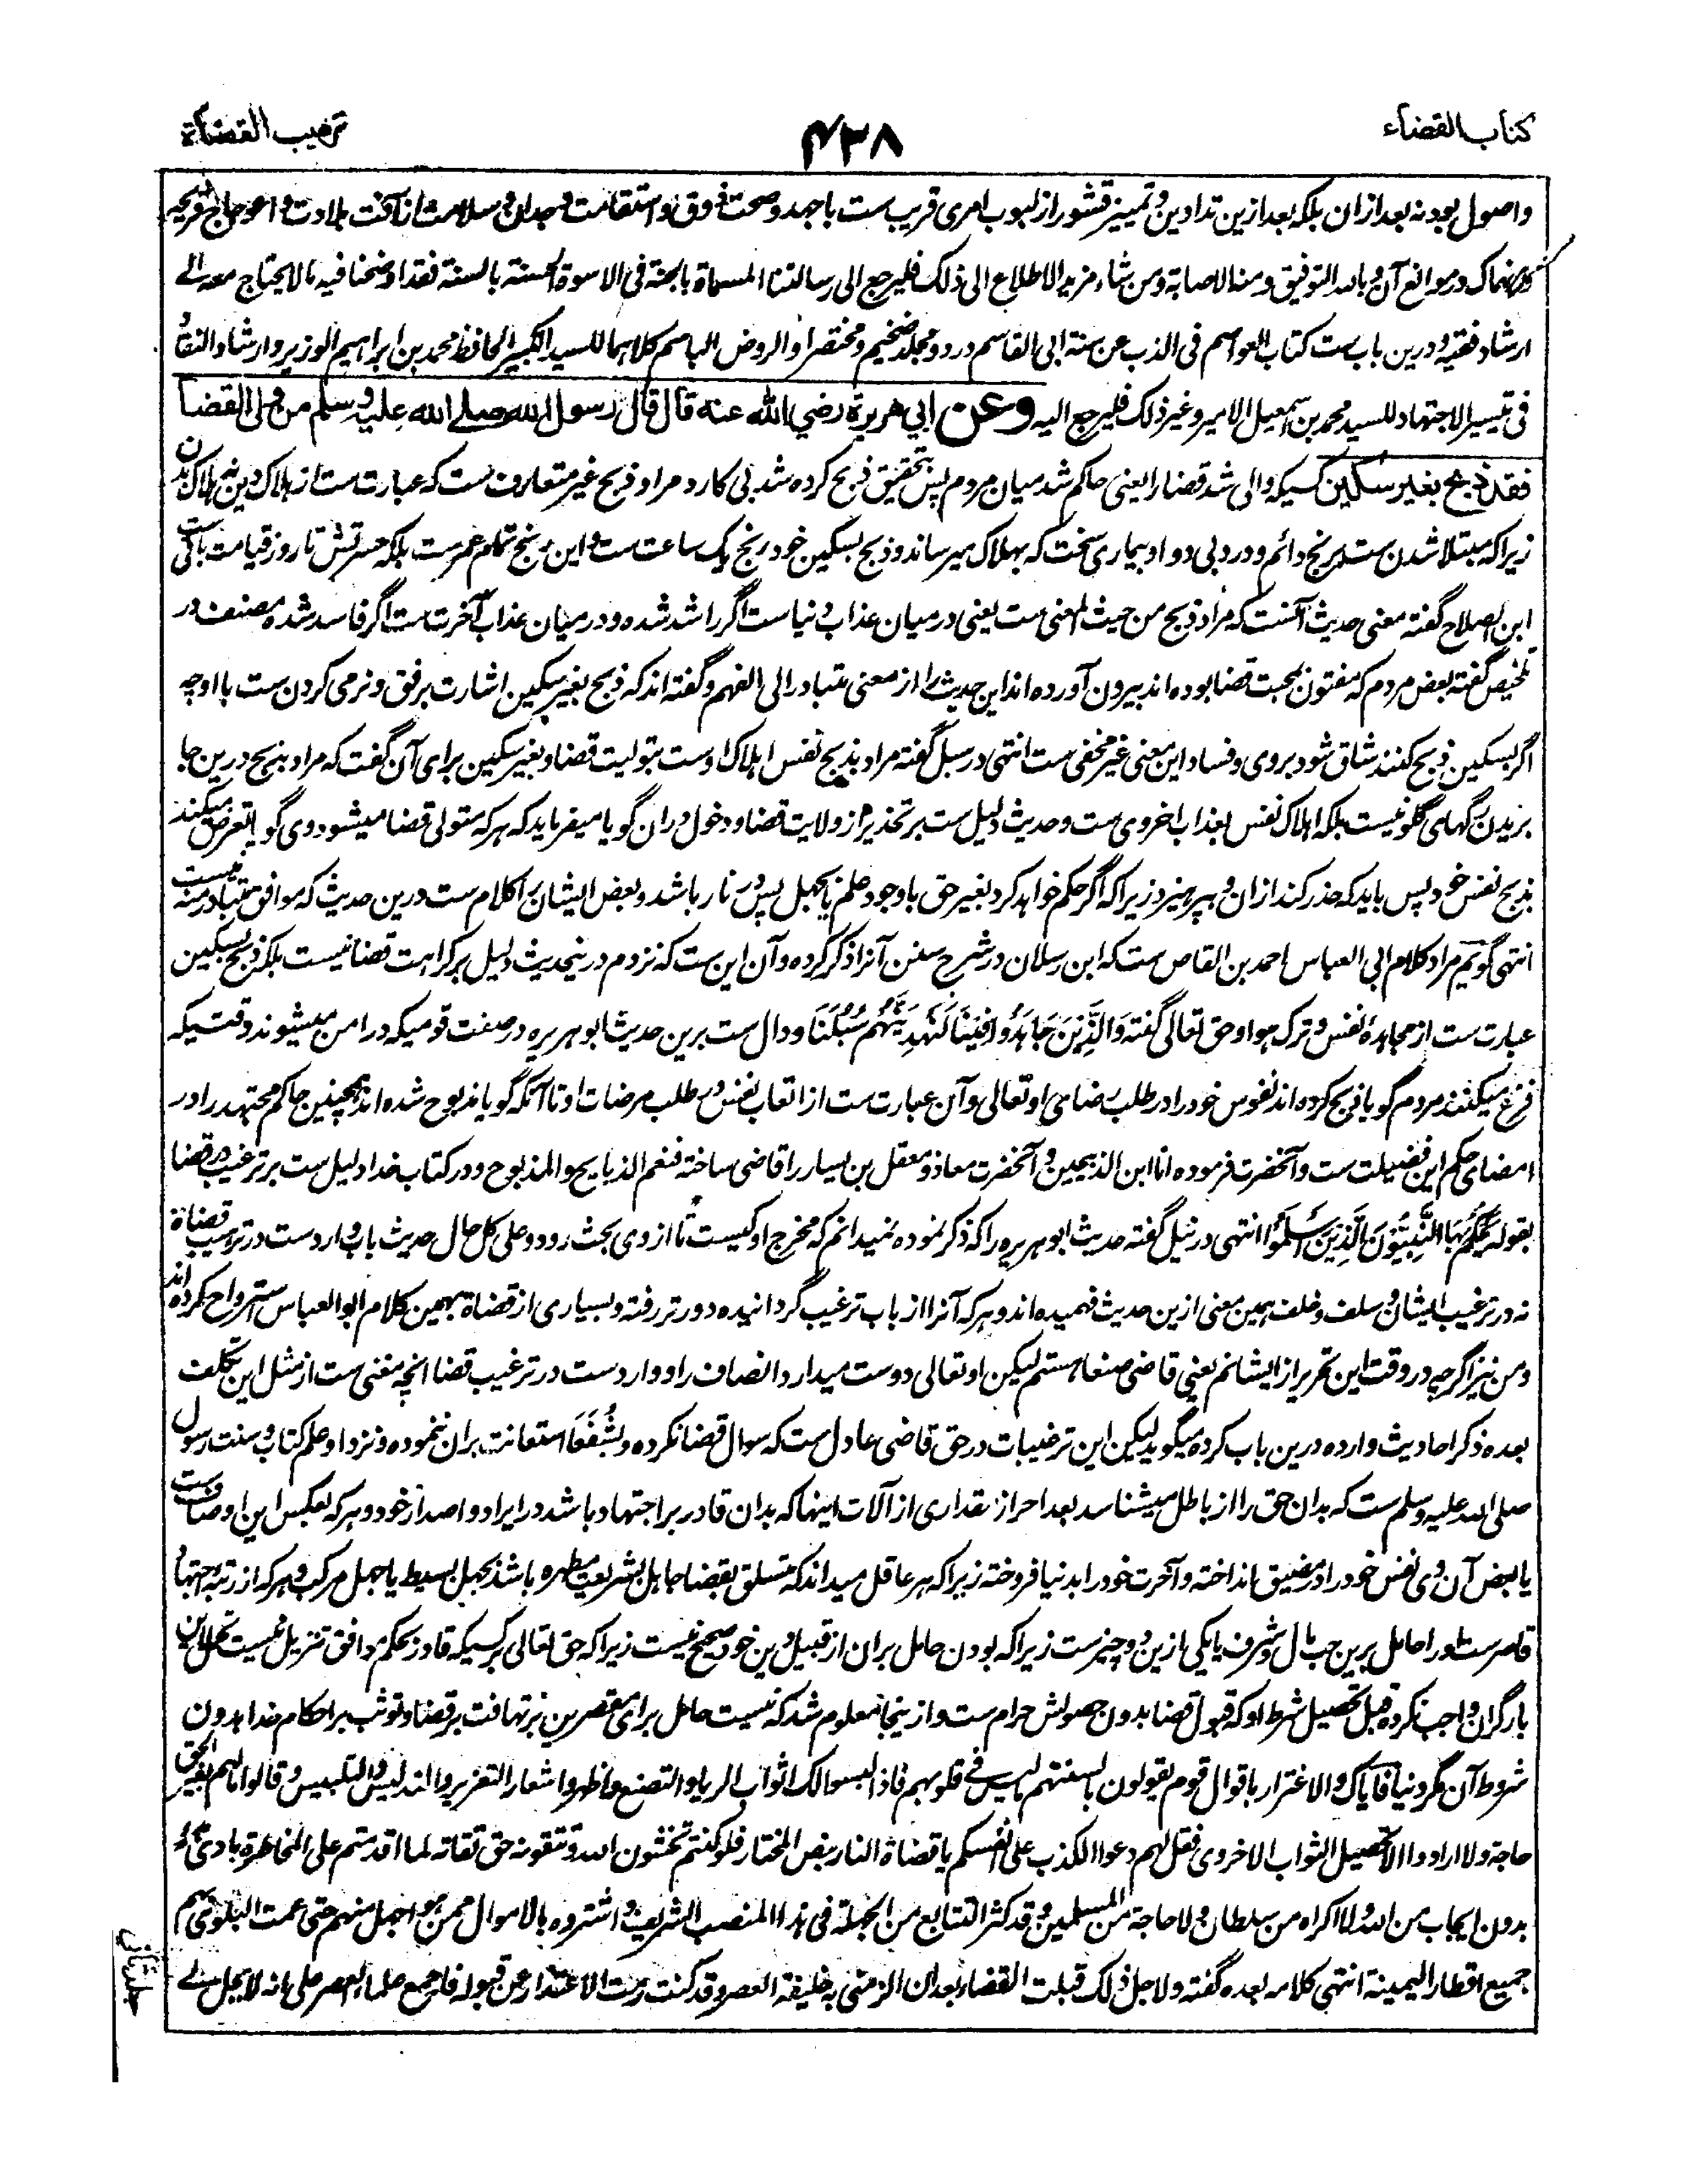 کتاب القضاء
۴۳۸
ترهیب القضاة
واصول بود نه بعد ازان بلکه بعد ازین تداوین وتمییز قشور از لبوب امری قریب ست باجهد وصحت ذوق واستقامت وجدان وسلامت از آفت بلادت واعوجاج قریحه
در موانع آن وبالله التوفیق ومنه الاصابة ومن شاء مزید الاطلاع الی ذلک فلیرجع الی رسالتنا المسماة بالجنة فی الاسوة الحسنة بالسنة فقد اوضحنا فیه ما لا یحتاج معه الی
ارشاد فقیه ودرین باب ست کتاب العواصم فی الذب عن سنة ابی القاسم در دو مجلد ضخیم ومختصر او الروض الباسم کلاهما للسید الکبیر الحافظ محمد بن ابراهیم الوزیر وارشاد النقاد
فی تیسیر الاجتهاد للسید محمد بن اسمعیل الامیر وغیر ذلک فلیرجع الیه وعن ابی هریرة رضی الله عنه قال قال رسول الله صلی الله علیه وسلم من ولی القضا
فقد ذبح بغیر سکین کسیکه والی شد قضا را یعنی حاکم شد میان مردم پس بتحقیق ذبح کرده شد بی کارد مراد ذبح غیر متعارف ست که عبارت ست از هلاک دین نه هلاک بدن
زیراکه مبتلا شدن ست برنج دائم ودرد بی دوا وبیماری سخت که بهلاک میرساند وذبح بسکین خود رنج یک ساعت ست واین رنج تمام عمر ست بلکه حسرتش تا روز قیامت باقی ست
ابن الصلاح گفته معنی حدیث آنست که مراد ذبح من حیث المعنی ست یعنی در میان عذاب دنیا ست اگر راشد شده ودر میان عذاب آخرت ست اگر فاسد شده مصنف در
تلخیص گفته بعض مردم که مفتون بمحبت قضا بوده اند بیرون آورده اند این حدیث را از معنی متبادر الی الفهم وگفته اند که ذبح بغیر سکین اشارت برفق ونرمی کردن ست با او چه
اگر بسکین ذبح کنند شاق شود بروی وفساد این معنی غیر مخفی ست انتهی در سبل گفته مراد بذبح نفس اهلاک اوست بتولیت قضا وبغیر سکین برای آن گفت که مراد بذبح درین جا
بریدن رگهای گلو نیست بلکه اهلاک نفس بعذاب اخروی ست وحدیث دلیل ست بر تحذیر از ولایت قضا ودخول دران گویا میفرماید که هر که متولی قضا میشود وی گویا تعرض میکند
بذبح نفس خود پس باید که حذر کند ازان وبپرهیزد زیراکه اگر حکم خواهد کرد بغیر حق باوجود علم یا بجهل پس در نار باشد وبعض ایشان را کلام ست درین حدیث که موافق متبادر منه نیست
انتهی گویم مراد کلام ابی العباس احمد بن القاص ست که ابن رسلان در شرح سنن آنرا ذکر کرده وآن این ست که نزدم درینحدیث دلیل بر کراهت قضا نیست بلکه ذبح بسکین
عبارت ست از مجاهدهٔ نفس وترک هوا وحق تعالی گفته وَالَّذِینَ جَاهَدُوا فِینَا لَنَهْدِیَنَّهُمْ سُبُلَنَا ودال ست برین حدیث ابو هریره در صفت قومیکه در امن میشوند وقتیکه
فزع میکنند مردم گویا ذبح کرده اند نفوس خود را در طلب رضای او تعالی وآن عبارت ست از اتعاب نفس در طلب مرضات او تا آنکه گویا مذبوح شده اند همچنین حاکم مجتهد را در
امضای حکم این فضیلت ست وآنحضرت فرموده انا ابن الذبیحین وآنحضرت معاذ ومعقل بن یسار را قاضی ساخته فنعم الذبایح والمذبوح ودر کتاب خدا دلیل ست بر ترغیب در قضا
بقوله یَحْکُمُ بِهَا النَّبِیُّونَ الَّذِینَ اَسْلَمُوا انتهی در نیل گفته حدیث ابو هریره را که ذکر نموده نمیدانم که مخرج او کیست تا از وی بحث رود وعلی کل حال حدیث باب وارد ست در ترهیب قضاة
نه در ترغیب ایشان وسلف وخلف همین معنی ازین حدیث فهمیده اند وهر که آنرا از باب ترغیب گردانیده دورتر رفته وبسیاری از قضاة بهمین کلام ابو العباس استرواح کرده اند
ومن نیز اگرچه در وقت این تحریر از ایشانم یعنی قاضی صنعا هستم لیکن او تعالی دوست میدارد انصاف را ووارد ست در ترغیب قضا انچه مغنی ست از مثل این تکلف
بعده ذکر احادیث وارده درین باب کرده میگوید لیکن این ترغیبات در حق قاضی عادل ست که سوال قضا نکرده وبشفعا استعانت بران ننموده ونزد او علم کتاب وسنت رسول
صلی الله علیه وسلم ست که بدان حق را از باطل میشناسد بعد احراز مقداری از آلات اینها که بدان قادر بر اجتهاد باشد در ایراد واصدار خود وهر که بعکس این اوصاف ست
یا بعض آن وی نفس خود را در مضیق انداخته وآخرت خود را بدنیا فروخته زیراکه هر عاقل میداند که متسلق بقضا جاهل بشریعت مطهره باشد بجهل بسیط یا جهل مرکب وهر که از رتبه اجتهاد
قاصر ست او را حامل برین حب مال وشرف یا یکی ازین دو چیز ست زیراکه بودن حامل بران از قبیل دین خود صحیح نیست زیراکه حق تعالی بر کسیکه قادر بحکم موافق تنزیل نیست تحمل این
بار گران واجب نکرده قبل تحصیل شرط او که قبول قضا بدون حصولش حرام ست وازینجا معلوم شد که نیست حامل برای مقصرین بر تهافت بر قضا وتوثب بر احکام خدا بدون
شروط آن مگر دنیا فایاک والاغترار باقوال قوم یقولون بالسنتهم ما لیس فی قلوبهم فاذا لبسوا لک اثواب الریا والتصنع واظهروا شعار التغریر والتدلیس والتلبیس وقالوا ما لهم بغیر الحق
حاجة ولا ارادوا الا تحصیل الثواب الاخروی فقل لهم دعوا الکذب علی انفسکم یا قضاة النار بنص المختار فلو کنتم تخشون الله وتتقونه حق تقاته لما اقدمتم علی المخاطرة بادی بدء
بدون ایجاب من الله ولا اکراه من سلطان ولا حاجة من المسلمین وقد کثر التتابع من الجهلة فی هذا المنصب الشریف واشتروه بالاموال ممن هو اجهل منهم حتی عمت البلوی بهم
جمیع اقطار الیمینة انتهی کلامه بعده گفته ولاجل ذلک قبلت القضاء بعد ان الزمنی به خلیفة العصر وقد کنت رمت الاعتذار عن قبوله فاجمع علماء العصر علی انه لا یحل لی
جلد ثانی